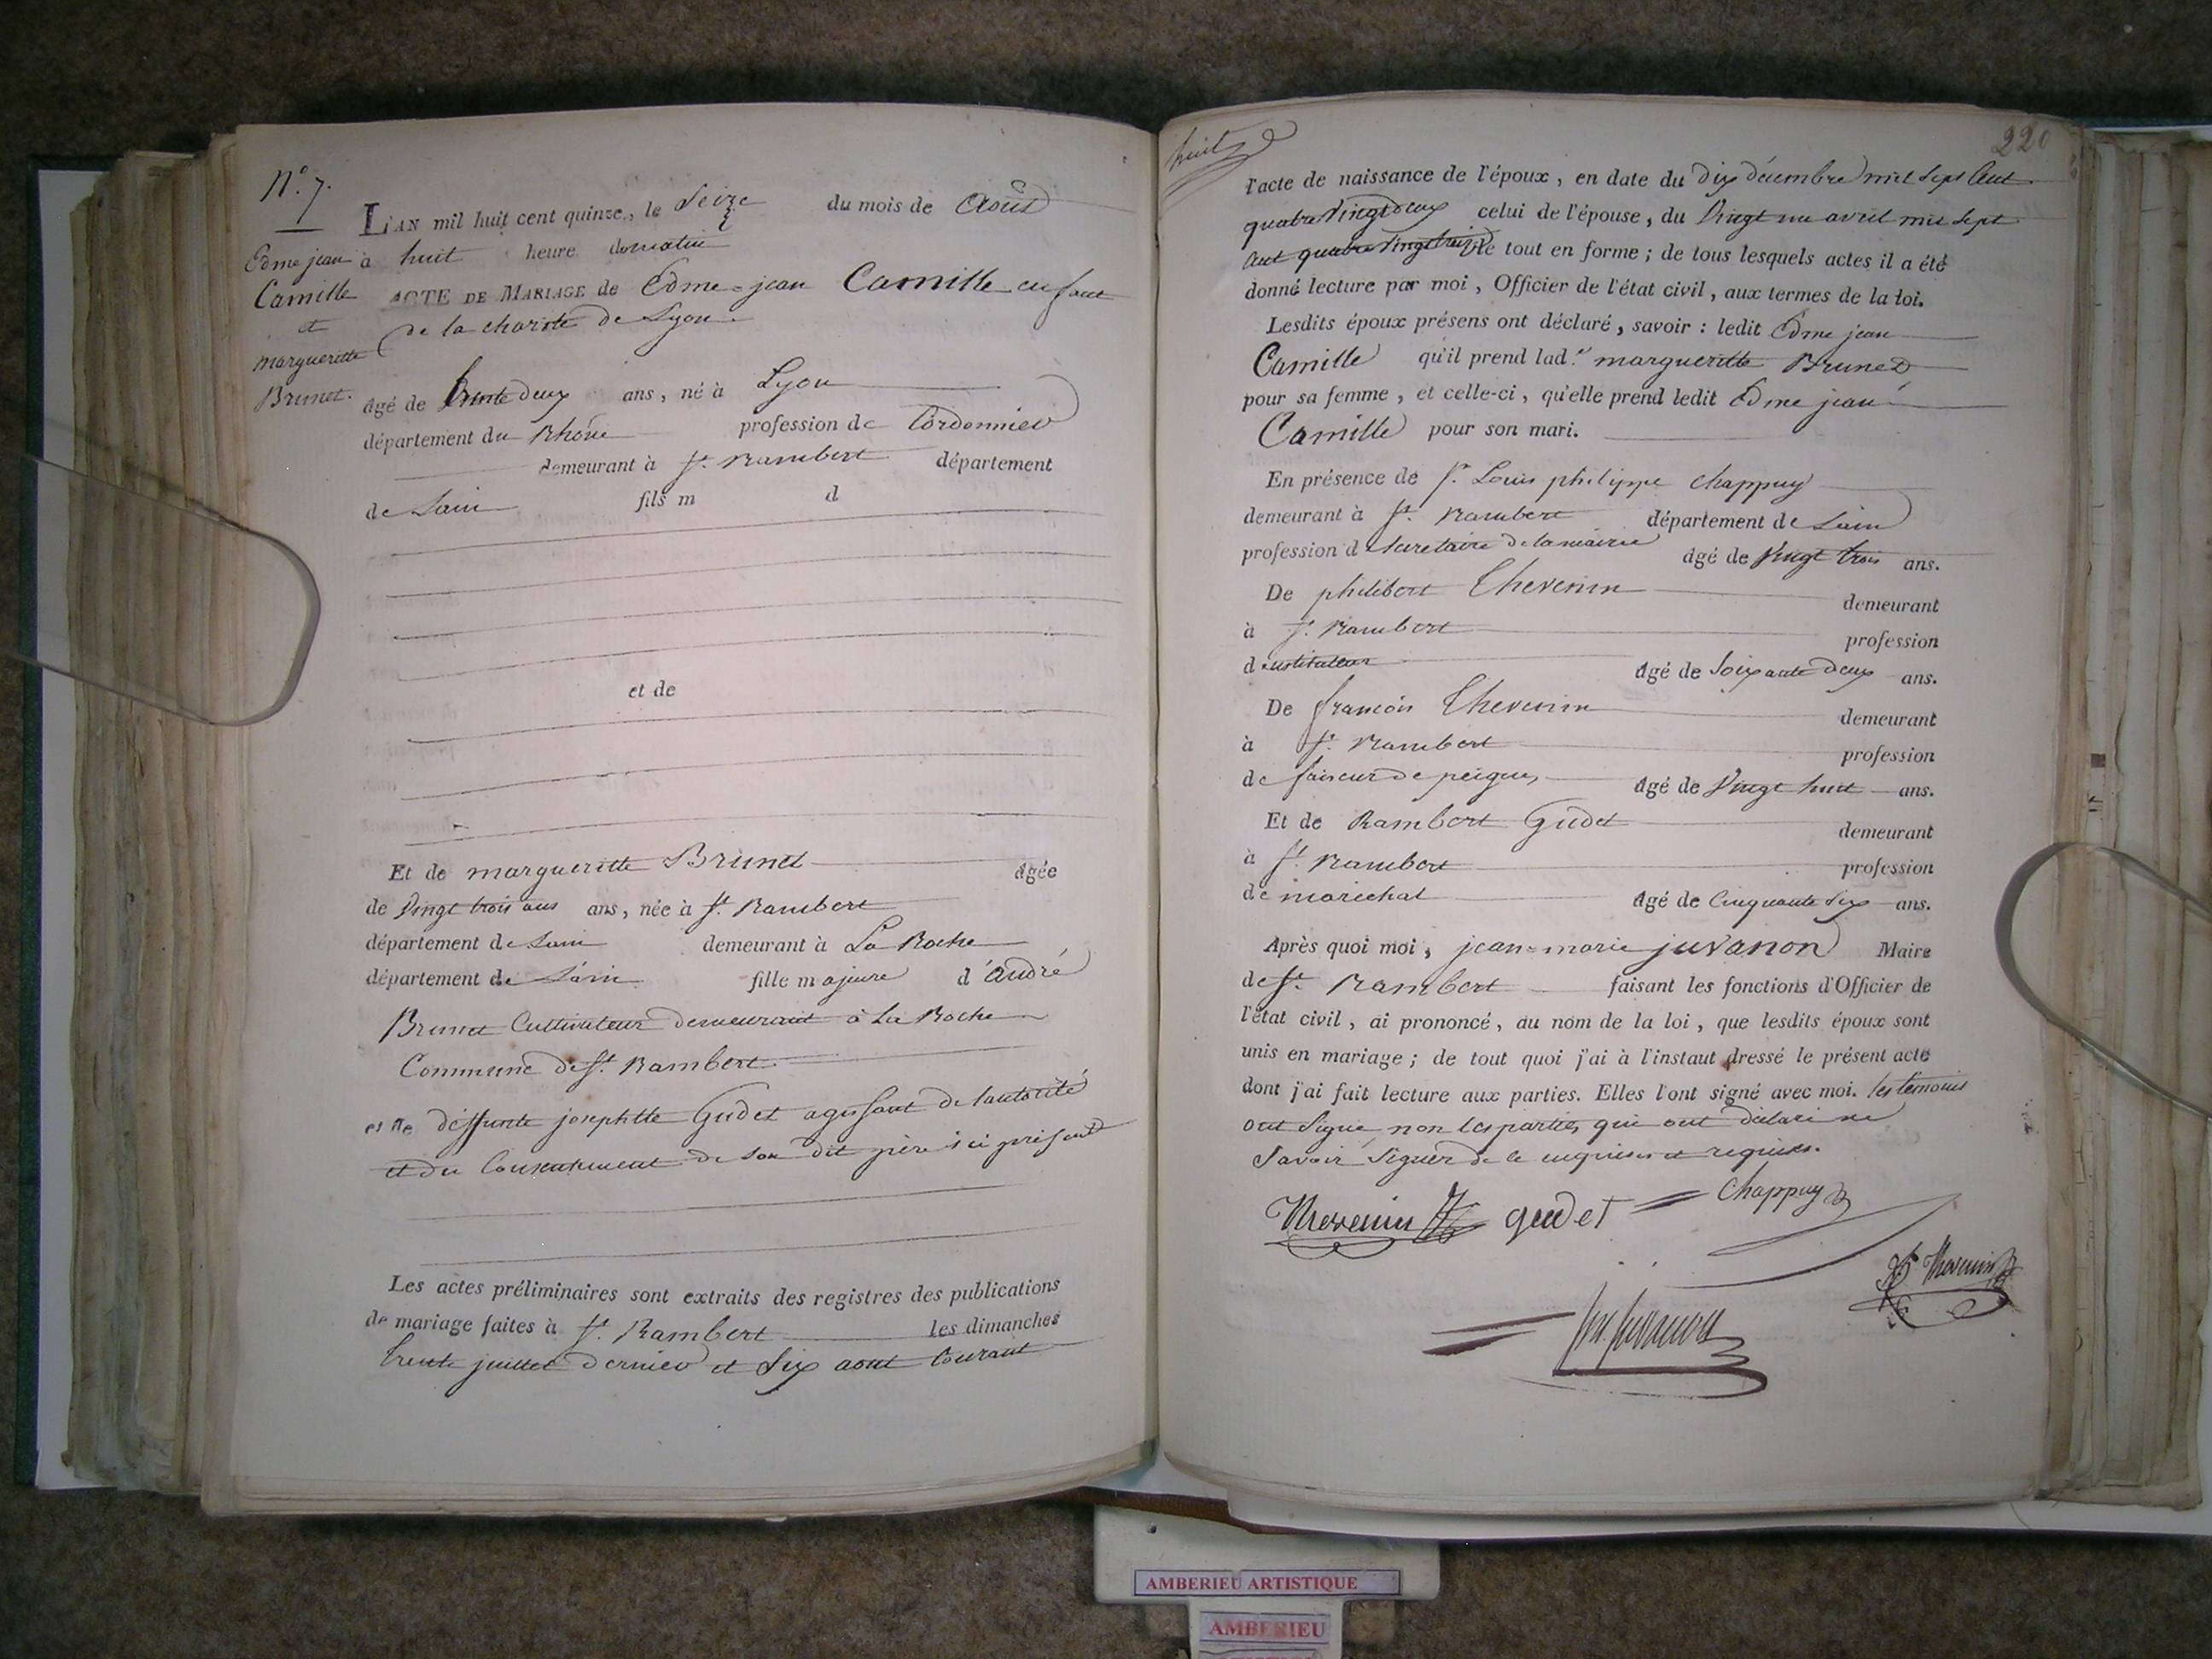 N.° 7.
Edme jean
Camille
et
margueritte
Brunet.
L'AN mil huit cent quinze, le Seize du mois de Août
à huit heure du matin
ACTE DE MARIAGE de Edme-jean Camille enfant
de la charité de Lyon.
âgé de trente deux ans, né à Lyon
département du Rhône profession de Cordonnier
demeurant à St. Rambert département
de Lain fils m d
et de
Et de margueritte Brunet âgée
de Vingt trois ans ans, née à St. Rambert
département de Lain demeurant à La Roche
département de L'ain fille majeure d'André
Brunet Cultivateur demeurant à La Roche
Commune de St. Rambert
et de deffunte josephtte Gudet agissant de lautorité
et du Consentement de son dit père ici présent
Les actes préliminaires sont extraits des registres des publications
de mariage faites à St. Rambert les dimanches
trente juillet dernier et Six aout Courant
huit
220
l'acte de naissance de l'époux, en date du dix décembre mil sept Cent
quatre Vingt deux celui de l'épouse, du Vingt un avril mil sept
Cent quatre Vingt treize le tout en forme; de tous lesquels actes il a été
donné lecture par moi, Officier de l'état civil, aux termes de la loi.
Lesdits époux présens ont déclaré, savoir: ledit Edme jean
Camille qu'il prend lad.e margueritte Brunet
pour sa femme, et celle-ci, qu'elle prend ledit Edme jean
Camille pour son mari.
En présence de Sr. Louis philippe Chappuy
demeurant à St. Rambert département de Lain
profession de Secretaire de la mairie âgé de Vingt trois ans.
De philibert Thevenin demeurant
à St. Rambert profession
d'instituteur âgé de Soixante deux ans.
De françois Thevenin demeurant
à St. Rambert profession
de faiseur de peignes âgé de Vingt huit ans.
Et de Rambert Gudet demeurant
à St. Rambert profession
de maréchal âgé de Cinquante six ans.
Après quoi moi, jean-marie juvanon Maire
de St. Rambert faisant les fonctions d'Officier de
l'état civil, ai prononcé, au nom de la loi, que lesdits époux sont
unis en mariage; de tout quoi j'ai à l'instaut dressé le présent acte
dont j'ai fait lecture aux parties. Elles l'ont signé avec moi. les temoins
ont signé, non les parties qui ont déclaré ne
Savoir Signer de ce enquises et requises.
Thevenin gudet Chappuy
Thevenin
juvanon
AMBERIEU ARTISTIQUE
AMBERIEU